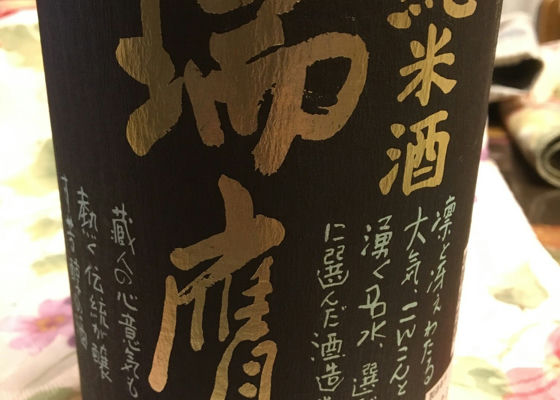 純米酒
瑞鷹
凛と冴えわたる
大気、こんこんと
湧く名水、選
に選んだ酒造
蔵人の心意気も
熱く伝統が醸
す芳醇な酒